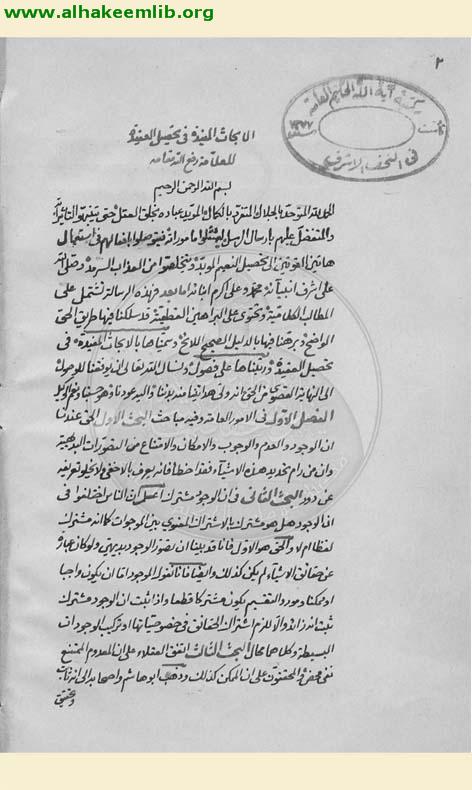 www.alhakeemlib.org
٢
مكتبة آية الله الحكيم العامة
في النجف الاشرف
الابحاث المفيدة في تحصيل العقيدة
للعلامة رفع الله مقامه
بسم الله الرحمن الرحيم
الحمد لله المتوحد بالجلال المتفرد بالكمال المؤيد عباده بخلق العقل حتى
والمتفضل عليهم بارسال الرسل ليمتثلوا مأموراته فيتوصلوا بافعالهم في استعمال
هاتين القوتين الى تحصيل النعيم المؤبد ويتخلصوا من العذاب السرمد وصلى الله
على اشرف انبيائه محمد وعلى اكرم امنائه اما بعد فهذه الرسالة تشتمل على
المطالب الكلامية وتحتوي على البراهين القطعية قد سلكنا فيها طريق الحق
الواضح وبرهنا فيها بالدليل الصحيح اللائح وسميناها بالابحاث المفيدة في
تحصيل العقيدة ورتبناها على فصول ونسأل الله تعالى ان يوفقنا للوصول
الى النهاية القصوى من الحق انه ولي هدايتنا منه بدئنا واليه عودنا وهو حسبنا ونعم الوكيل
الفصل الاول في الامور العامة وفيه مباحث البحث الاول الحق عندنا
ان الوجود والعدم والوجوب والامكان والامتناع من التصورات البديهية
وان من رام تحديد هذه الاشياء فقد اخطأ فانه يعرف بالاخفى ولا يخلو تعريفه
عن دور البحث الثاني في ان الوجود مشترك اعلم ان الناس اختلفوا في
ان الوجود هل هو مشترك بالاشتراك المعنوي بين الموجودات كما انه مشترك
لفظا ام لا والحق هو الاول فانا قد بينا ان تصور الوجود بديهي ولو كان عبارة
عن حقائق الاشياء لم يكن كذلك وايضا فانا نقول الموجود اما ان يكون واجبا
او ممكنا ومورد التقسيم يكون مشتركا قطعا واذا ثبت ان الوجود مشترك
ثبت انه زائد والا لزم اشتراك الحقائق في خصوصياتها او تركب الوجودات
البسيطة وكلاهما محال البحث الثالث اتفق العقلاء على ان المعدوم الممتنع
نفي محض والمحققون على ان الممكن كذلك وذهب ابو هاشم واصحابه الى انه ثابت